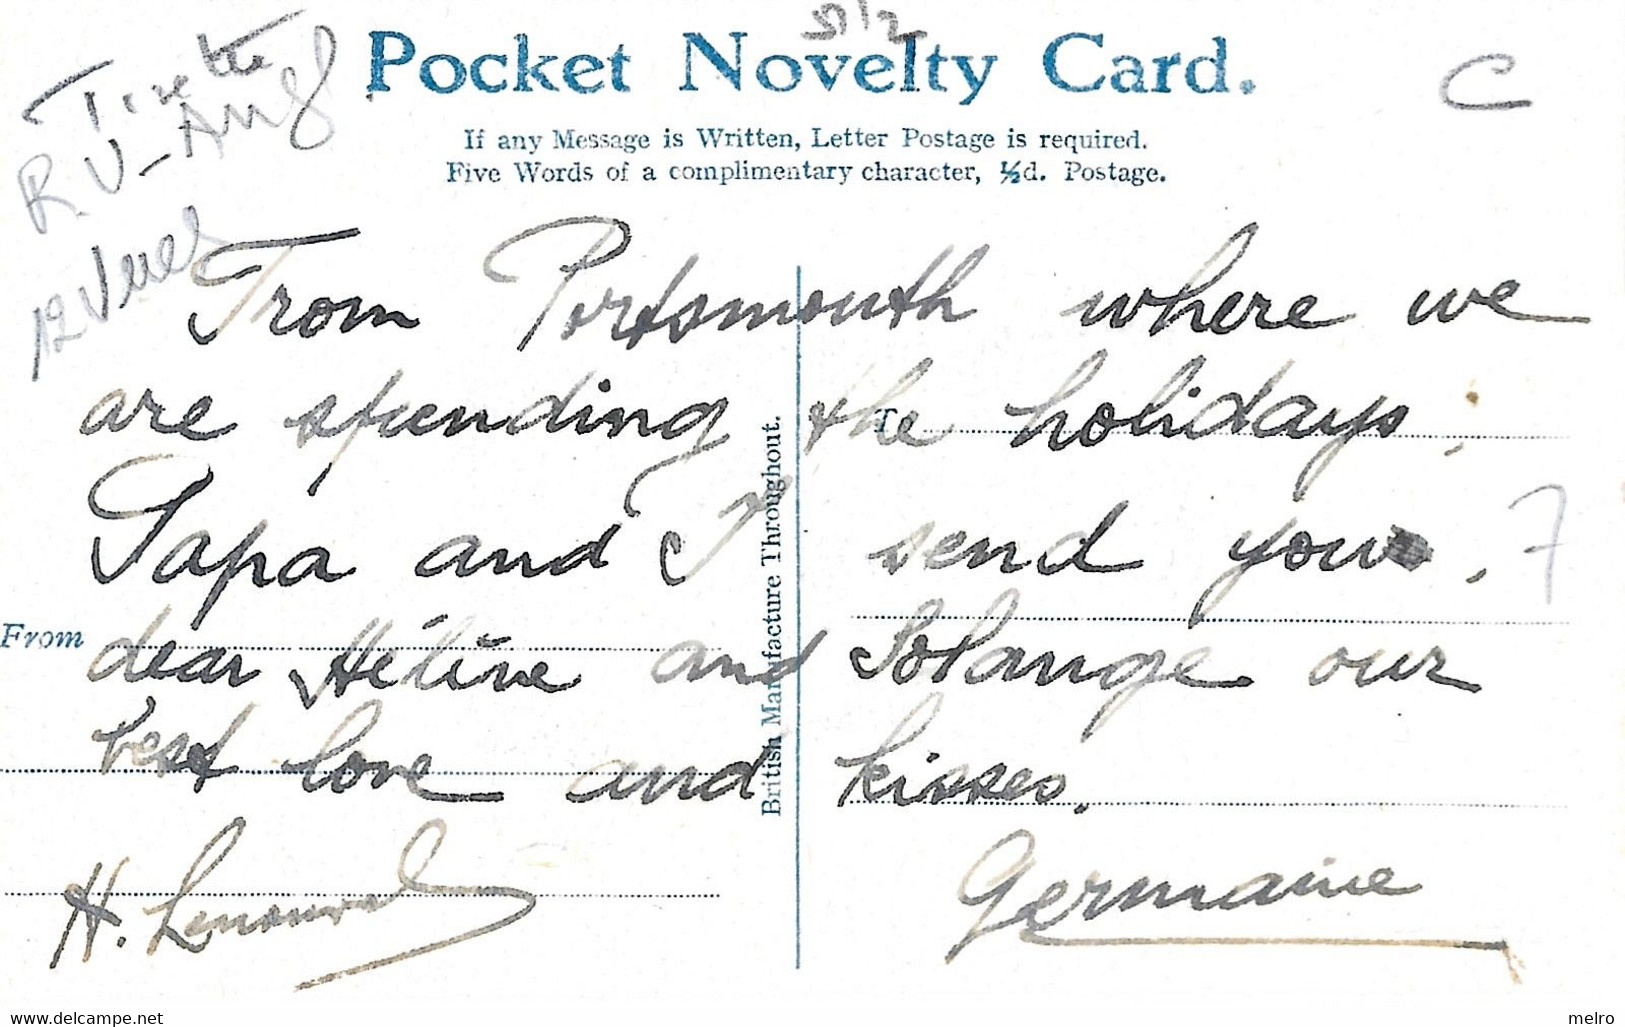 Tirette
R.U-Angl
12 Vues
Pocket Novelty Card.
C
If any Message is Written, Letter Postage is required.
Five Words of a complimentary character, ½d. Postage.
From Portsmouth where we
are spending the holidays,
Papa and I send you,
7
dear Hélène and Solange our
best love and kisses.
Germaine
From
To
British Manufacture Throughout.
www.delcampe.net
melro